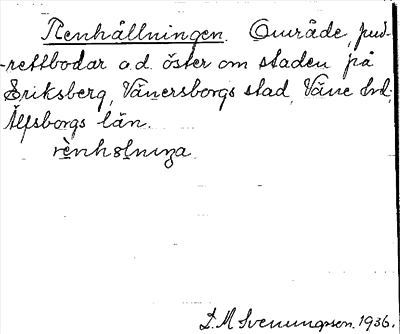 Renhållningen. Område, pud-
-rettbodar o.d. öster om staden på
Eriksberg, Vänersborgs stad, Väne hd,
Älfsborgs län.
rènhɔlnıŋa
L. M Svenungsson. 1936.